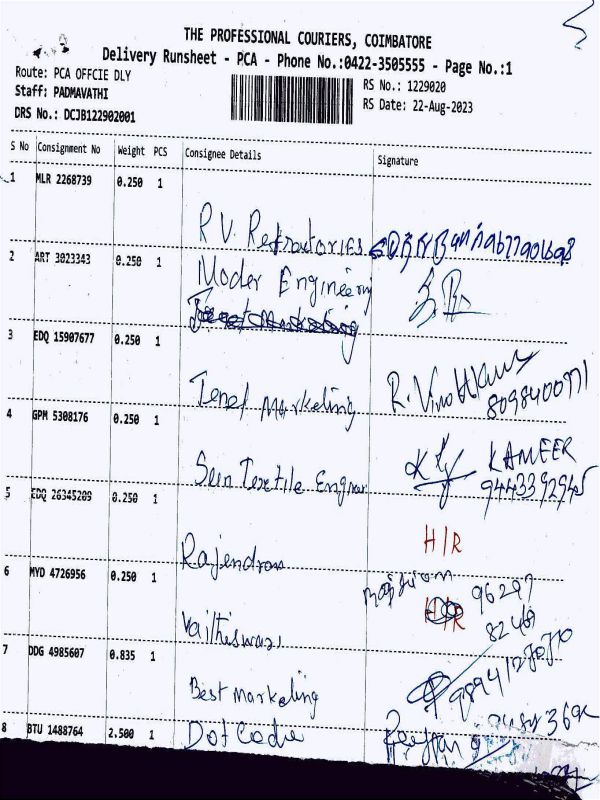 THE PROFESSIONAL COURIERS, COIMBATORE
Delivery Runsheet - PCA - Phone No.:0422-3505555 - Page No.:1
Route: PCA OFFCIE DLY
RS No.: 1229020
Staff: PADMAVATHI
RS Date: 22-Aug-2023
DRS No.: DCJB122902001
S No Consignment No Weight PCS Consignee Details Signature
1 MLR 2268739 0.250 1
RV. Refractories
2 ART 3023343 0.250 1
Moder Engineering
3 EDQ 15907677 0.250 1
Tenet Marketing R. Vinothkumar
8098400771
4 GPM 5308176 0.250 1
Sun Textile KAMEER
9443392945
5 EDQ 26345209 0.250 1
H/R
Rajendran
6 MYD 4726956 0.250 1
96297
H/R
8248
Vaithiswari
7 DDG 4985607 0.835 1
Best Marketing
8 BTU 1488764 2.500 1